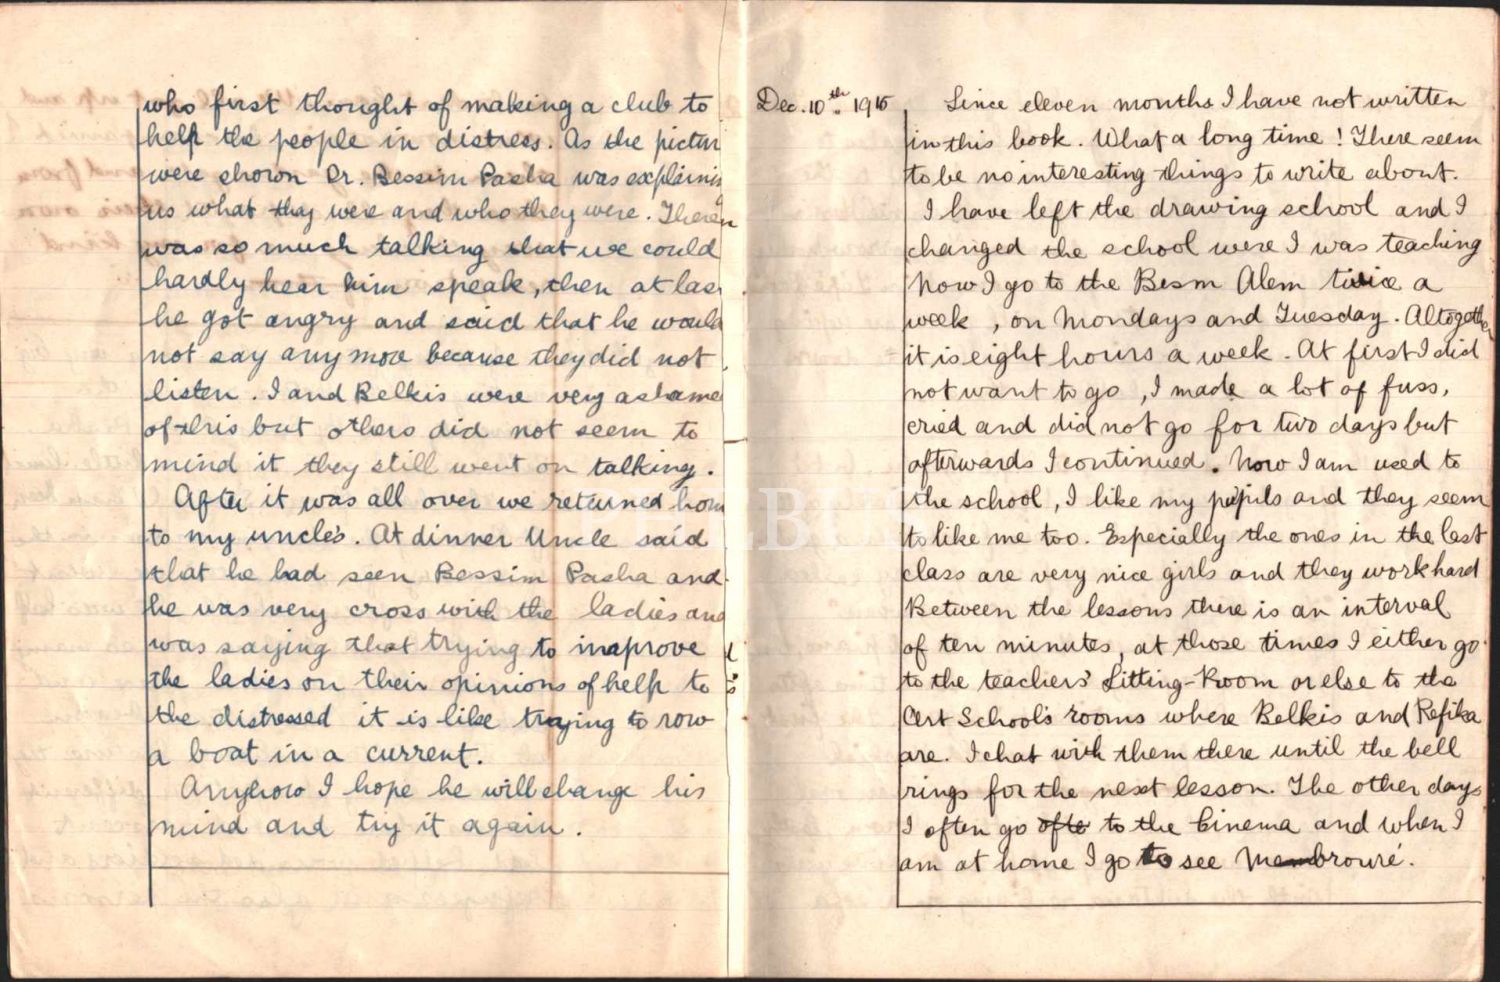 who first thought of making a club to
help the people in distress. As the pictur
were shown Dr. Bessim Pasha was explainin
us what they were and who they were. There
was so much talking that we could
hardly hear him speak, then at las
he got angry and said that he would
not say any more because they did not
listen. I and Belkis were very ashame
of this but others did not seem to
mind it they still went on talking.
After it was all over we returned hom
to my uncle's. At dinner Uncle said
that he had seen Bessim Pasha and
he was very cross with the ladies and
was saying that trying to inaprove
the ladies on their opinions of help to
the distressed it is like trying to row
a boat in a current.
Anyhow I hope he will change his
mind and try it again.
Dec. 10th 1915
Since eleven months I have not written
in this book. What a long time! There seem
to be no interesting things to write about.
I have left the drawing school and I
changed the school were I was teaching
Now I go to the Besm Alem twice a
week, on Mondays and Tuesday. Altogether
it is eight hours a week. At first I did
not want to go, I made a lot of fuss,
cried and did not go for two days but
afterwards I continued. Now I am used to
the school, I like my pupils and they seem
to like me too. Especially the ones in the last
class are very nice girls and they work hard
Between the lessons there is an interval
of ten minutes, at those times I either go
to the teachers' Sitting-Room or else to the
Art School's rooms where Belkis and Refika
are. I chat with them there until the bell
rings for the next lesson. The other days
I often go ofte to the Cinema and when I
am at home I go to see